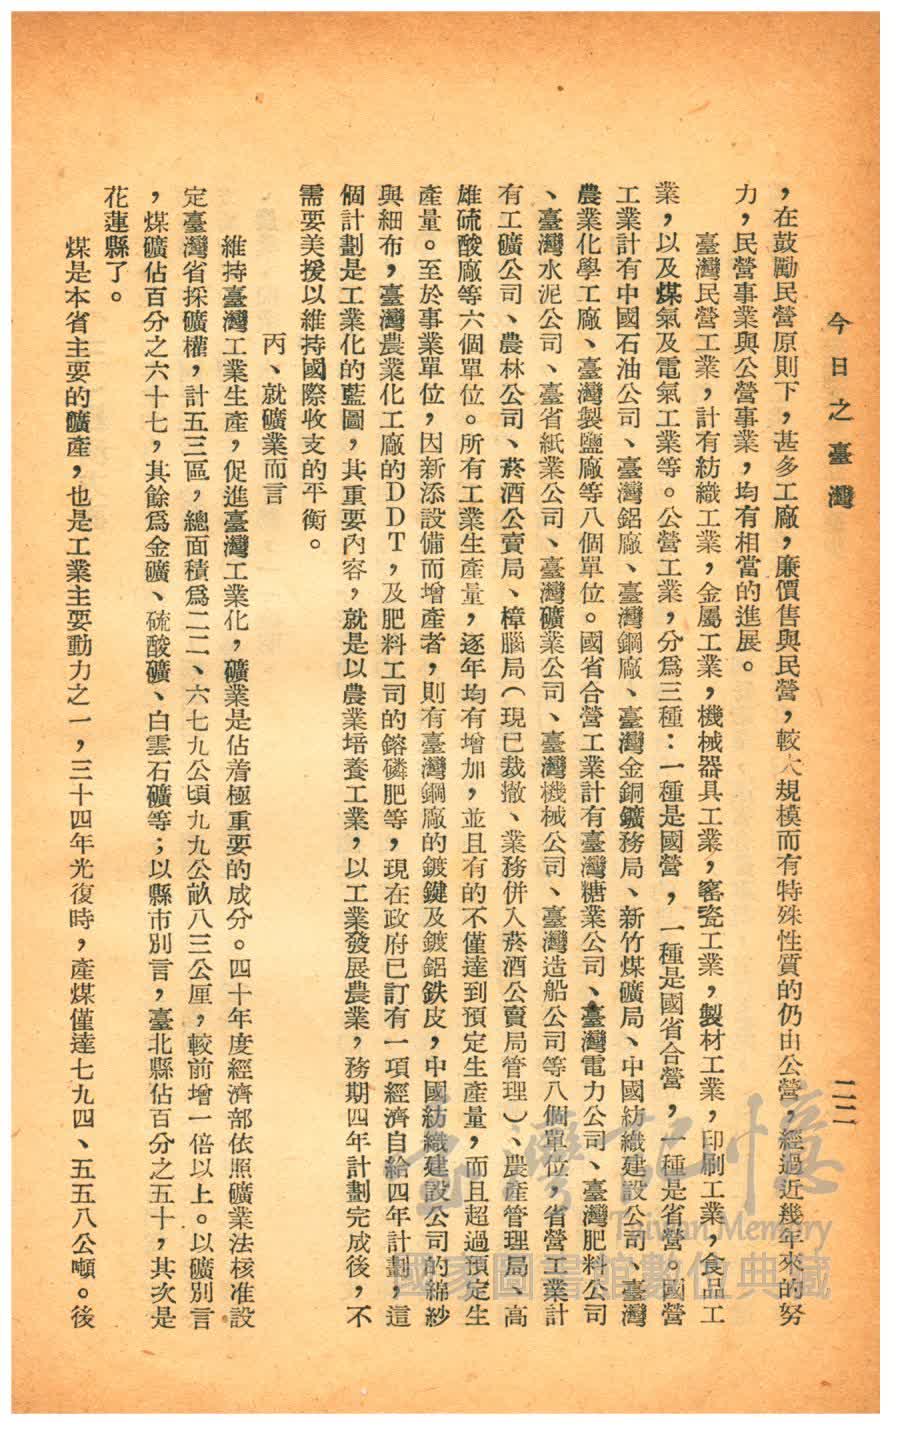 今日之臺灣
二二
，在鼓勵民營原則下，甚多工廠，廉價售與民營，較大規模而有特殊性質的仍由公營，經過近幾年來的努
力，民營事業與公營事業，均有相當的進展。
臺灣民營工業，計有紡織工業，金屬工業，機械器具工業，窰瓷工業，製材工業，印刷工業，食品工
業，以及煤氣及電氣工業等。公營工業，分爲三種：一種是國營，一種是國省合營，一種是省營。國營
工業計有中國石油公司、臺灣鋁廠、臺灣鋼廠、臺灣金銅鑛務局、新竹煤礦局、中國紡織建設公司、臺灣
農業化學工廠、臺灣製鹽廠等八個單位。國省合營工業計有臺灣糖業公司、臺灣電力公司、臺灣肥料公司
、臺灣水泥公司、臺省紙業公司、臺灣礦業公司、臺灣機械公司、臺灣造船公司等八個單位，省營工業計
有工礦公司、農林公司、菸酒公賣局、樟腦局（現已裁撤、業務併入菸酒公賣局管理）、農產管理局、高
雄硫酸廠等六個單位。所有工業生產量，逐年均有增加，並且有的不僅達到預定生產量，而且超過預定生
產量。至於事業單位，因新添設備而增產者，則有臺灣鋼廠的鍍鍵及鍍鋁鉄皮，中國紡織建設公司的綿紗
與細布，臺灣農業化工廠的DDT，及肥料工司的鎔磷肥等，現在政府已訂有一項經濟自給四年計劃，這
個計劃是工業化的藍圖，其重要內容，就是以農業培養工業，以工業發展農業，務期四年計劃完成後，不
需要美援以維持國際收支的平衡。
丙、就礦業而言
維持臺灣工業生產，促進臺灣工業化，礦業是佔着極重要的成分。四十年度經濟部依照礦業法核准設
定臺灣省採礦權，計五三區，總面積爲二二、六七九公頃九九公畝八三公厘，較前增一倍以上。以礦別言
，煤礦佔百分之六十七，其餘爲金礦、硫酸礦、白雲石礦等；以縣市別言，臺北縣佔百分之五十，其次是
花蓮縣了。
煤是本省主要的礦產，也是工業主要動力之一，三十四年光復時，產煤僅達七九四、五五八公噸。後
臺灣記憶
Taiwan Memory
國家圖書館數位典藏